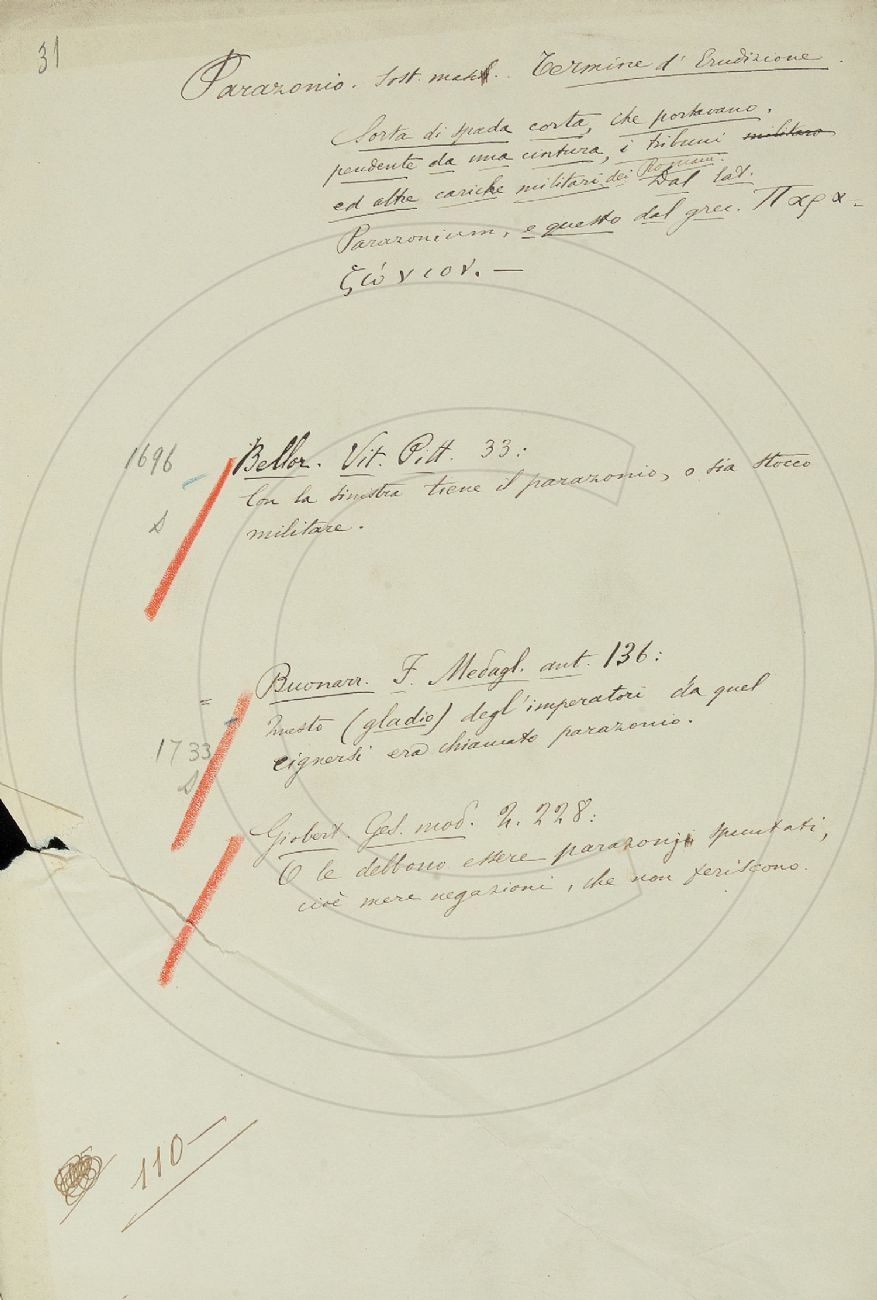 31
Parazonio. Sost. masc. Termine d'Erudizione.
Sorta di spada corta, che portavano
pendente da una cintura, i tribuni militare
ed altre cariche militari dei Romani. Dal lat.
Parazonium, e questo dal grec. Παρα-
ζώνιον. —
1696 Bellor. Vit. Pitt. 33:
Con la sinistra tiene il parazonio, o sia stocco
militare.
Buonarr. F. Medagl. ant. 136:
Questo (gladio) degl'imperatori da quel
1733 cignersi era chiamato parazonio.
Giobert. Ges. mod. 2. 228:
O le debbono essere parazonj spuntati,
cioè mere negazioni, che non feriscono.
110 —